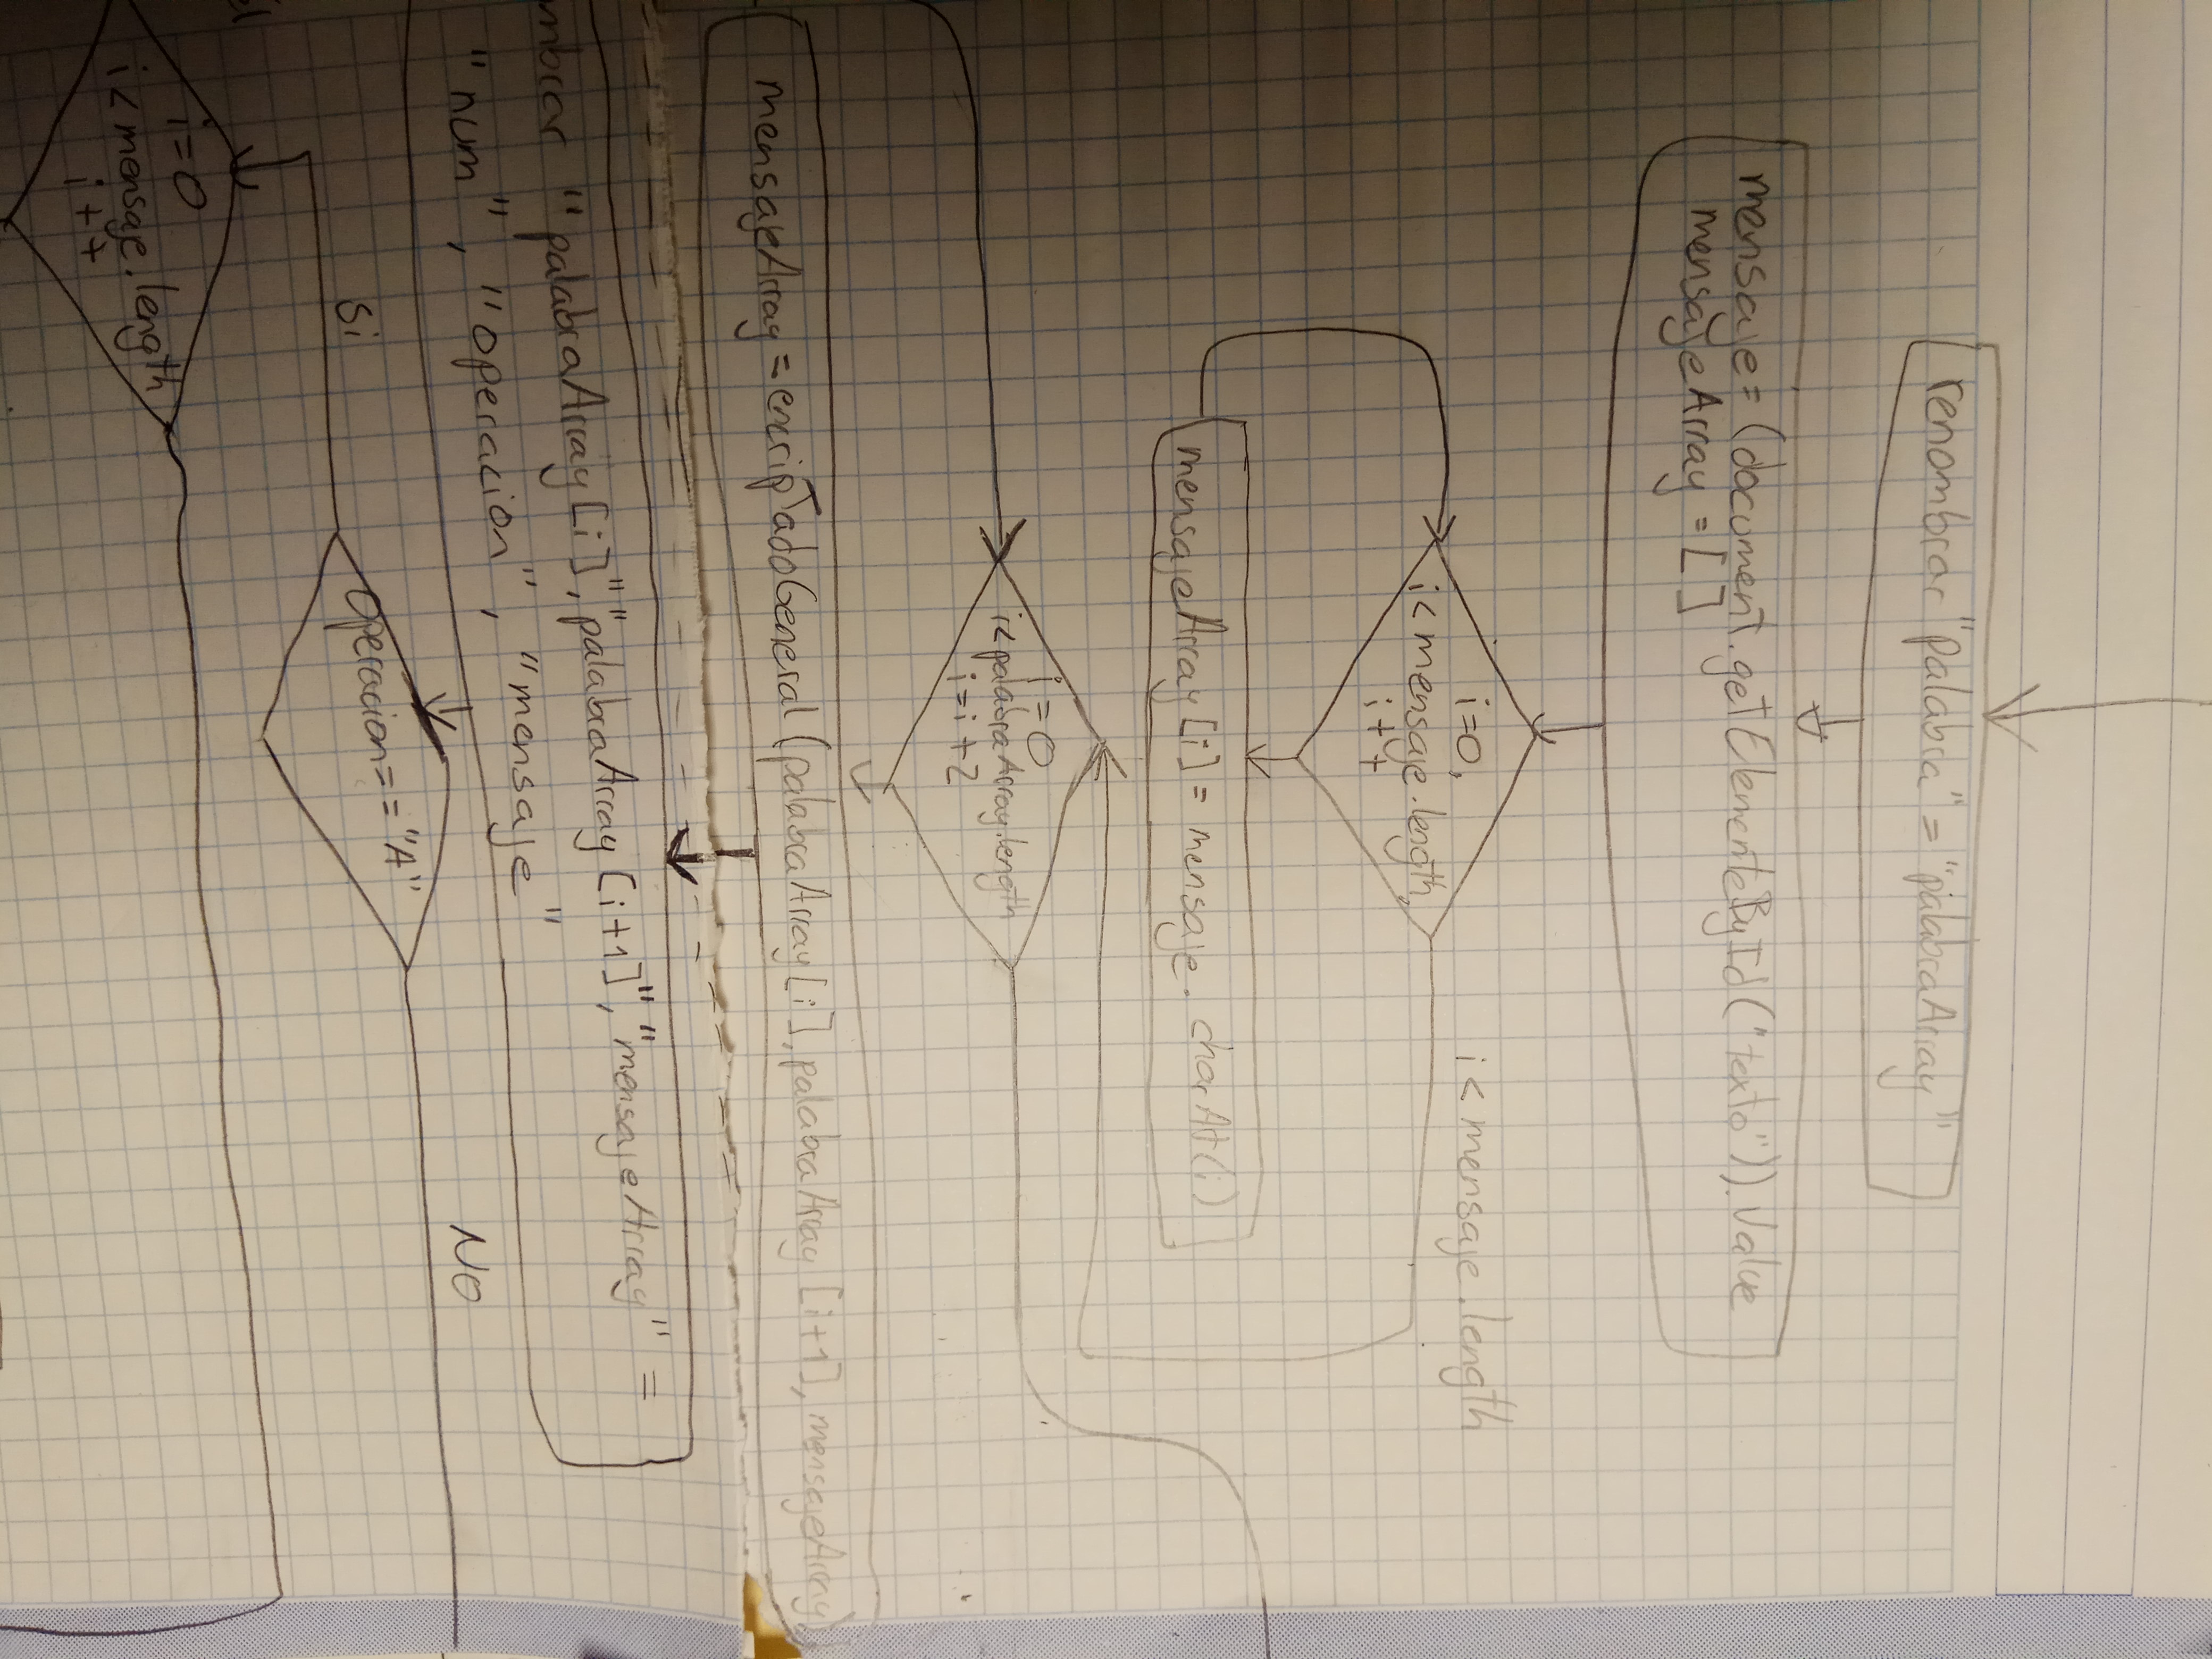 renombrar "palabra" = "palabraArray"
mensaje = (document.getElementeById("texto")).Value
mensajeArray = []
i=0,
i < mensaje.length,
i++
i < mensaje.length
mensajeArray[i] = mensaje.charAt(i)
i=0
i<palabraArray.length
i=i+2
mensajeArray = encriptadoGeneral (palabraArray[i], palabraArray[i+1], mensajeArray)
"palabraArray[i]", "palabraArray[i+1]", "mensajeArray" =
"num", "operacion", "mensaje"
Operacion=="A"
Si
No
i=0
i<mensaje.length
i++